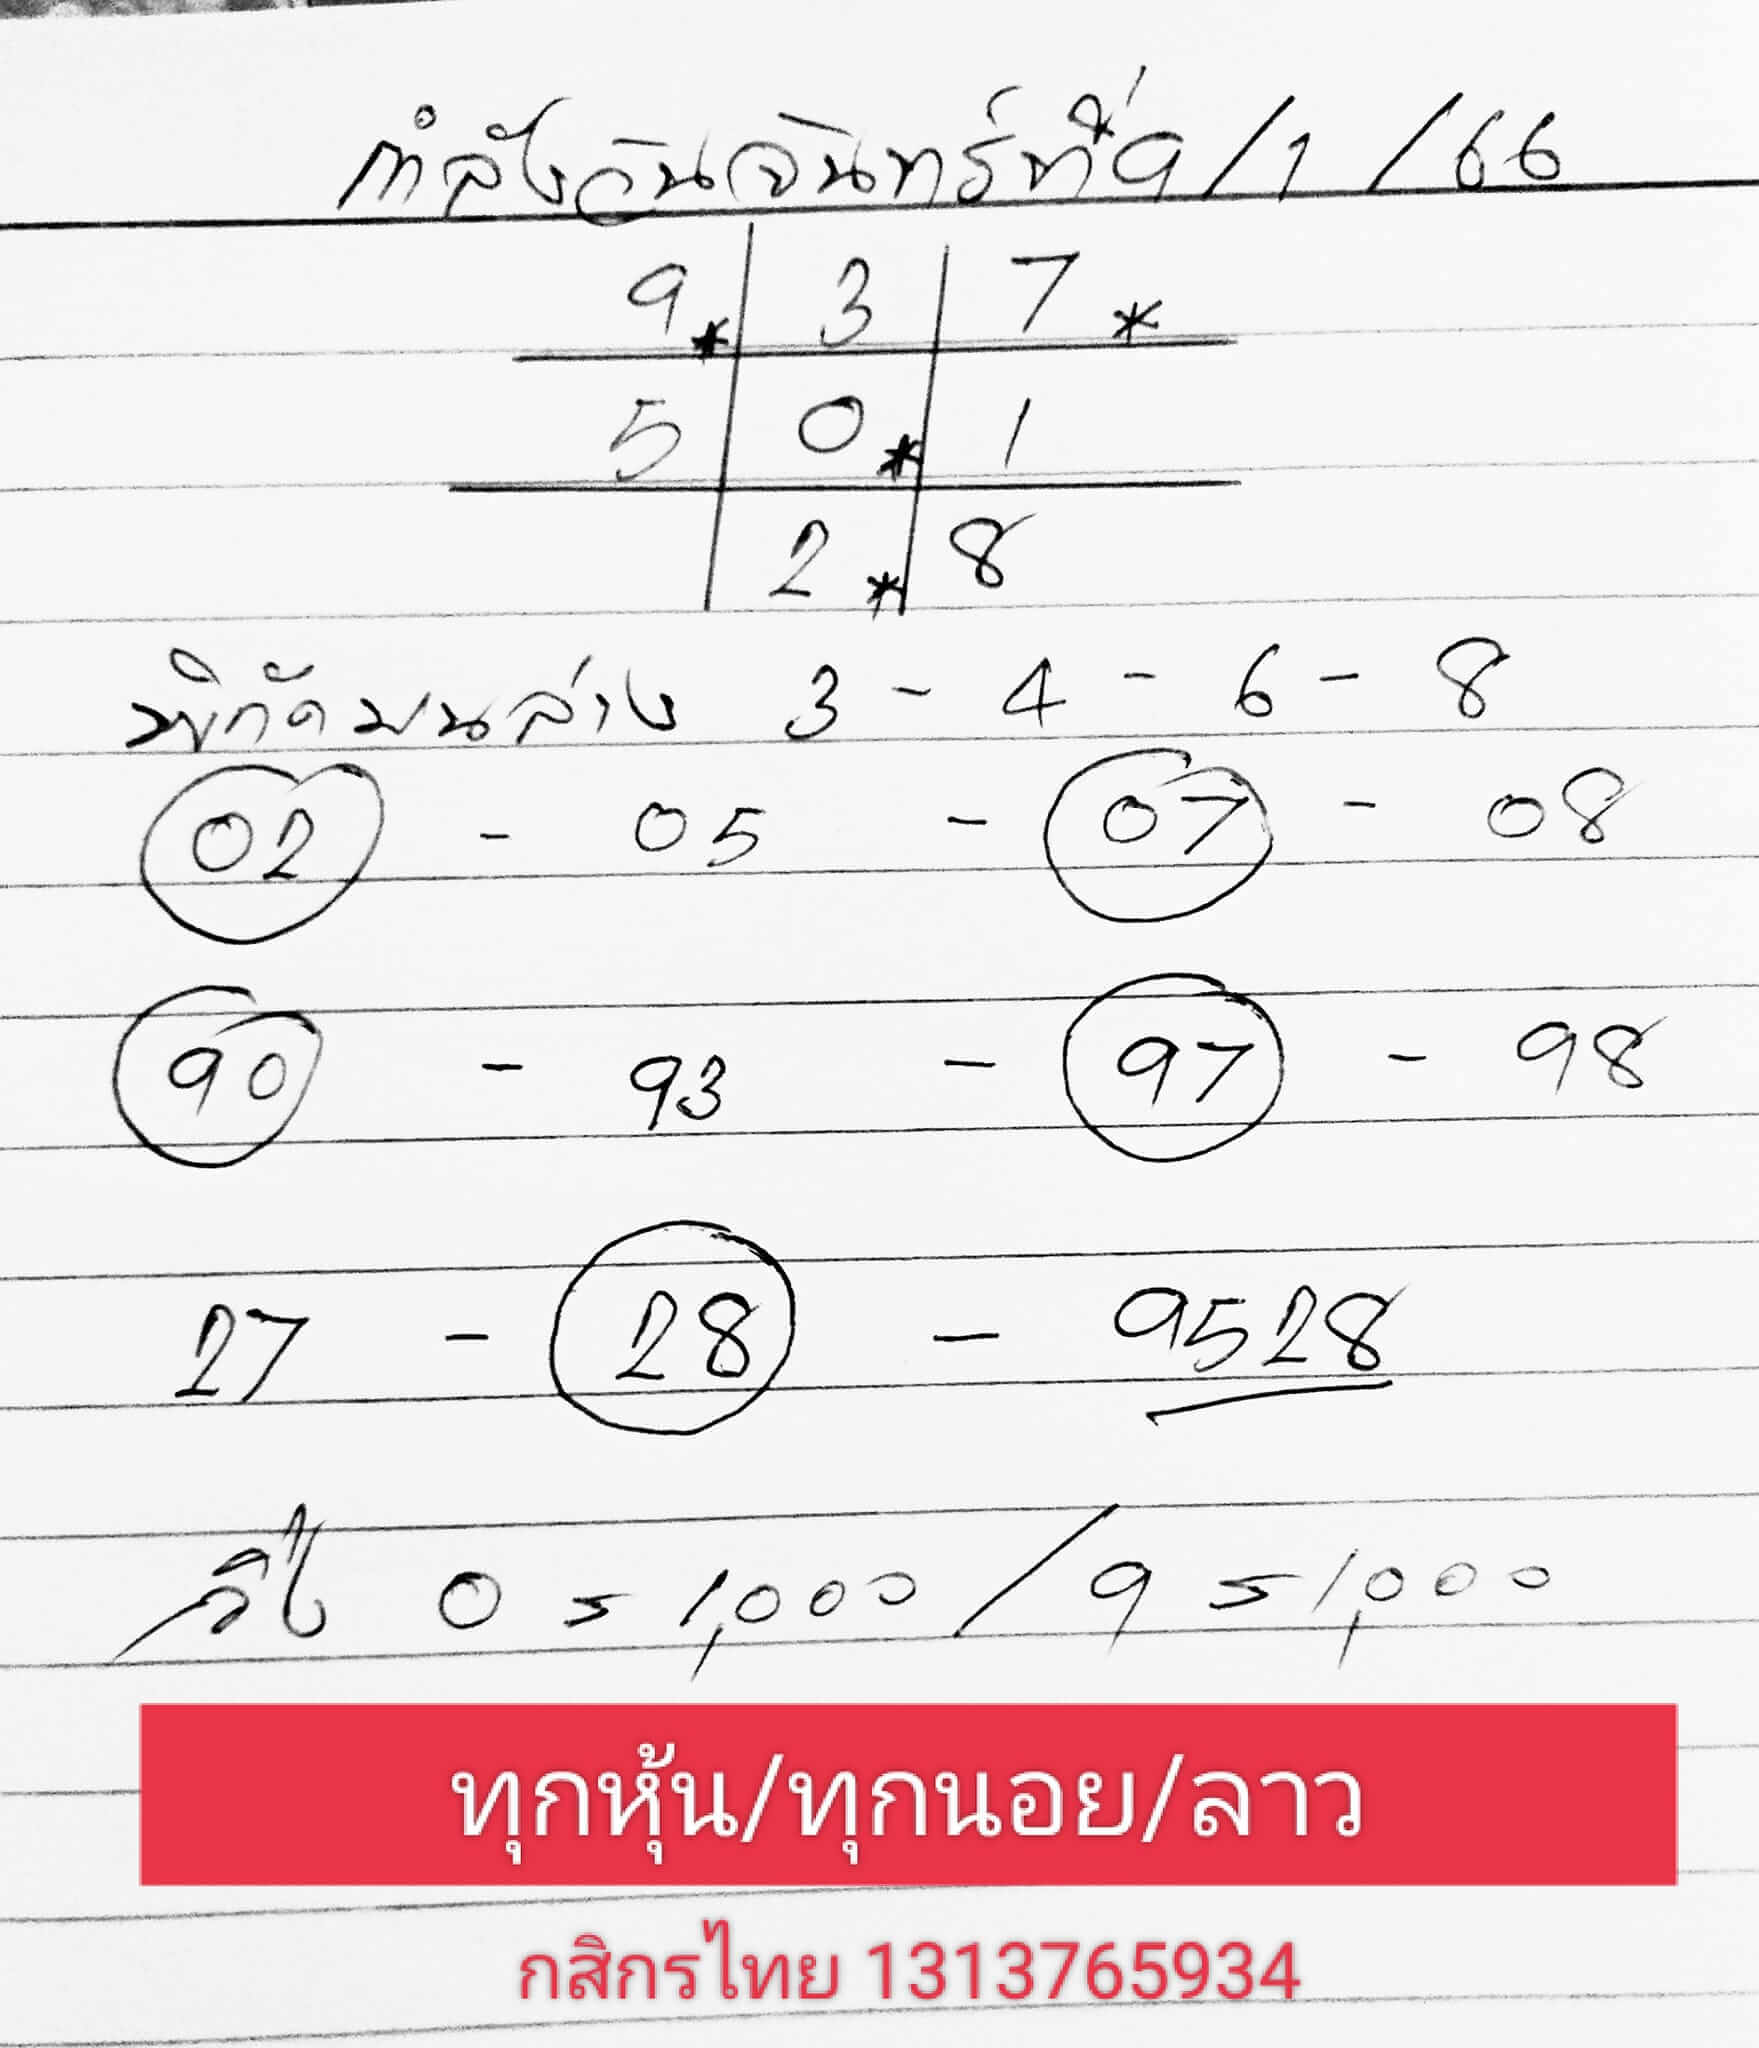 กำลังวันจันทร์ที่ 9/1/66
9* 3 7*
5 0* 1
2* 8
พิกัดบนล่าง 3 - 4 - 6 - 8
02 - 05 - 07 - 08
90 - 93 - 97 - 98
27 - 28 - 9528
0 = 1,000 / 9 = 1,000
ทุกหุ้น/ทุกนอย/ลาว
กสิกรไทย 1313765934